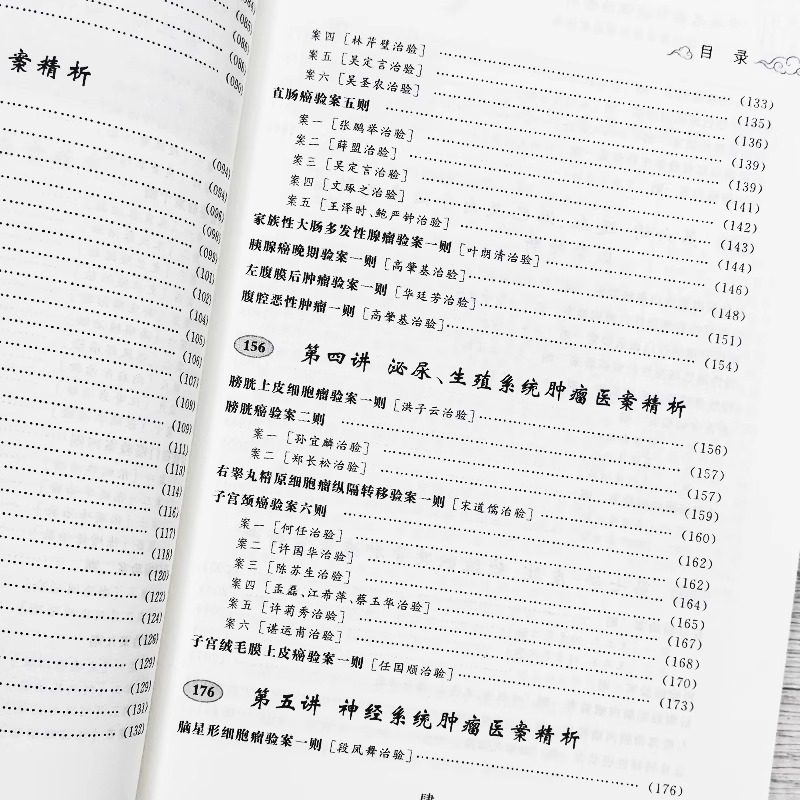 案精析
(101)
(102)
(104)
(105)
(106)
(107)
(108)
(109)
(111)
(113)
(114)
(116)
(117)
(118)
(120)
(122)
(124)
(126)
(129)
(131)
(132)
目 录
案四 [林芹璧治验] (133)
案五 [吴定言治验] (135)
案六 [吴圣农治验] (136)
直肠癌验案五则 (139)
案一 [张鹏举治验] (139)
案二 [薛盟治验] (141)
案三 [吴定言治验] (142)
案四 [文琢之治验] (143)
案五 [王泽时、鲍严钟治验] (144)
家族性大肠多发性腺瘤验案一则 [叶朗清治验] (146)
胰腺癌晚期验案一则 [高肇基治验] (148)
左腹膜后肿瘤验案一则 [华廷芳治验] (151)
腹腔恶性肿瘤一则 [高肇基治验] (154)
156 第四讲 泌尿、生殖系统肿瘤医案精析
膀胱上皮细胞瘤验案一则 [洪子云治验] (156)
膀胱癌验案二则 (157)
案一 [孙宜麟治验] (157)
案二 [郑长松治验] (159)
右睾丸精原细胞瘤纵隔转移验案一则 [宋道儒治验] (160)
子宫颈癌验案六则 (162)
案一 [何任治验] (162)
案二 [许国华治验] (164)
案三 [陈苏生治验] (165)
案四 [孟磊、江希萍、蔡玉华治验] (167)
案五 [许菊秀治验] (168)
案六 [谌运甫治验] (170)
子宫绒毛膜上皮癌验案一则 [任国顺治验] (173)
176 第五讲 神经系统肿瘤医案精析
脑星形细胞瘤验案一则 [段凤舞治验] (176)
肆